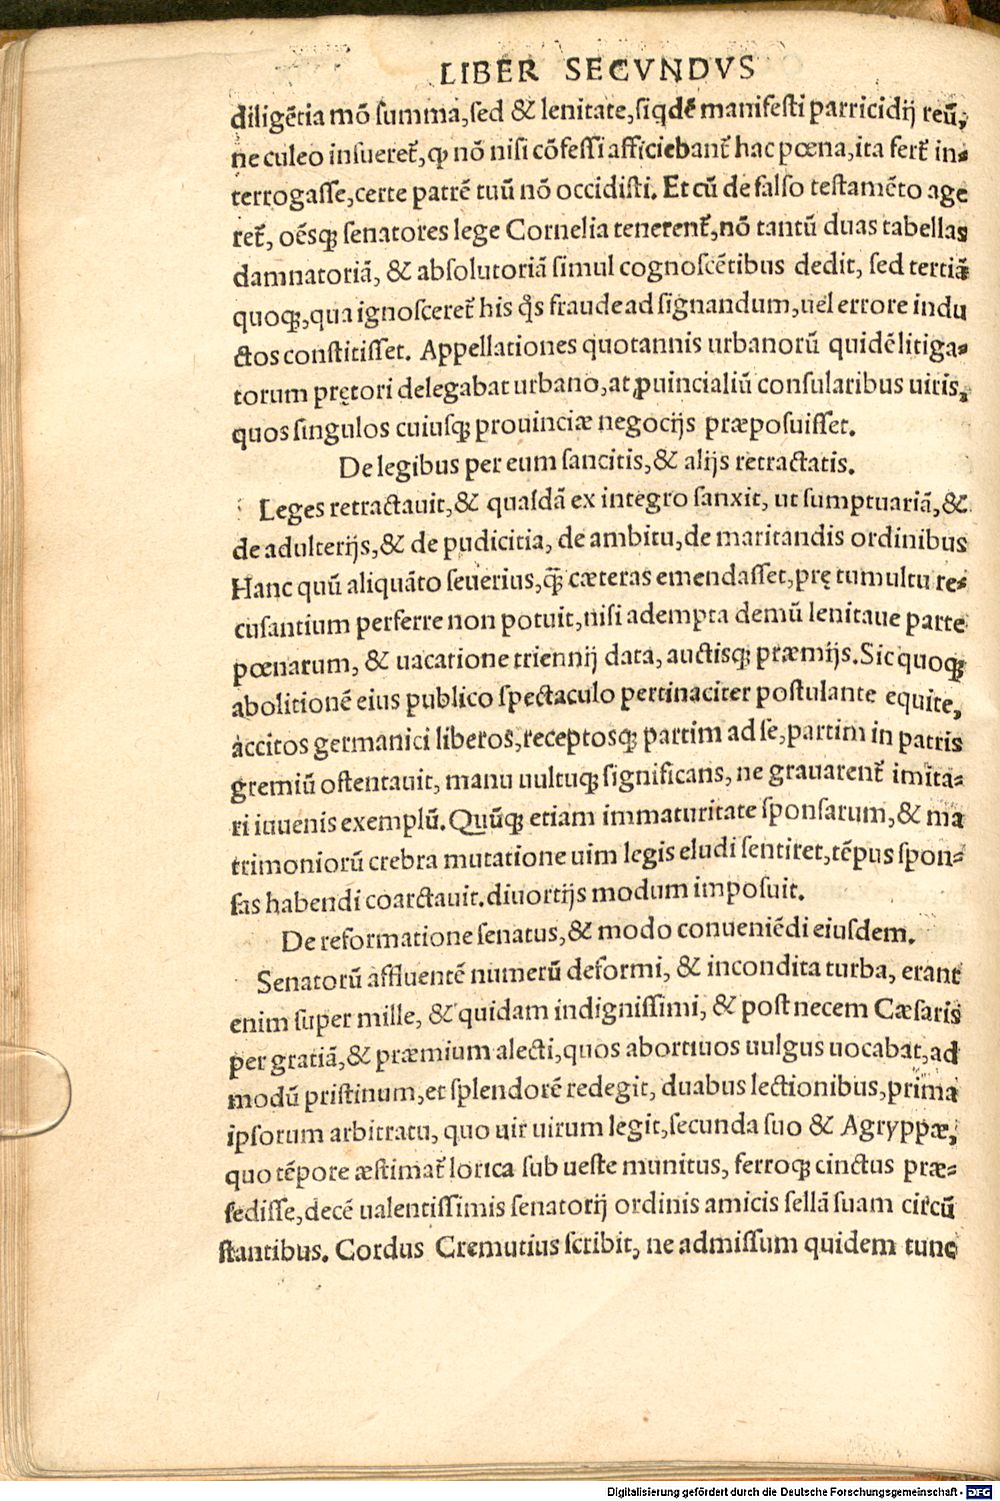 LIBER SECVNDVS
diligētia mō summa,sed & lenitate,siqdē manifesti parricidij reū,
ne culeo insueret̃,ꝙ nō nisi cōfessi afficiebant̃ hac pœna,ita fert̃ in-
terrogasse,certe patrē tuū nō occidisti. Et cū de falso testamēto age
ret̃, oēsqꝫ senatores lege Cornelia tenerent̃,nō tantū duas tabellas
damnatoriā, & absolutoriā simul cognoscētibus dedit, sed tertiā
quoqꝫ,qua ignosceret̃ his q̊s fraude ad signandum,uel errore indu
ctos constitisset. Appellationes quotannis urbanorū quidē litiga-
torum prętori delegabat urbano,at ꝓuincialiū consularibus uiris,
quos singulos cuiusqꝫ prouinciæ negocijs præposuisset.
De legibus per eum sancitis,& alijs retractatis.
Leges retractauit,& quasdā ex integro sanxit, ut sumptuariā,&
de adulterijs,& de pudicitia, de ambitu,de maritandis ordinibus
Hanc quū aliquāto seuerius,q̃ cæteras emendasset,prę tumultu re-
cusantium perferre non potuit,nisi adempta demū lenitaue parte
pœnarum, & uacatione triennij data, auctisqꝫ præmijs.Sic quoqꝫ
abolitionē eius publico spectaculo pertinaciter postulante equite,
accitos germanici liberos,receptosqꝫ partim ad se,partim in patris
gremiū ostentauit, manu uultuqꝫ significans, ne grauarent̃ imita-
ri iuuenis exemplū.Quūqꝫ etiam immaturitate sponsarum,& ma
trimoniorū crebra mutatione uim legis eludi sentiret,tēpus spon-
sas habendi coarctauit.diuortijs modum imposuit.
De reformatione senatus,& modo conueniēdi eiusdem.
Senatorū affluentē numerū deformi, & incondita turba, erant
enim super mille, & quidam indignissimi, & post necem Cæsaris
per gratiā,& præmium alecti,quos abortiuos uulgus uocabat,ad
modū pristinum,et splendorē redegit, duabus lectionibus,prima
ipsorum arbitratu, quo uir uirum legit,secunda suo & Agryppæ,
quo tēpore æstimat̃ lorica sub ueste munitus, ferroqꝫ cinctus præ-
sedisse,decē ualentissimis senatorij ordinis amicis sellā suam circū
stantibus. Cordus Cremutius scribit, ne admissum quidem tunc
Digitalisierung gefördert durch die Deutsche Forschungsgemeinschaft - DFG